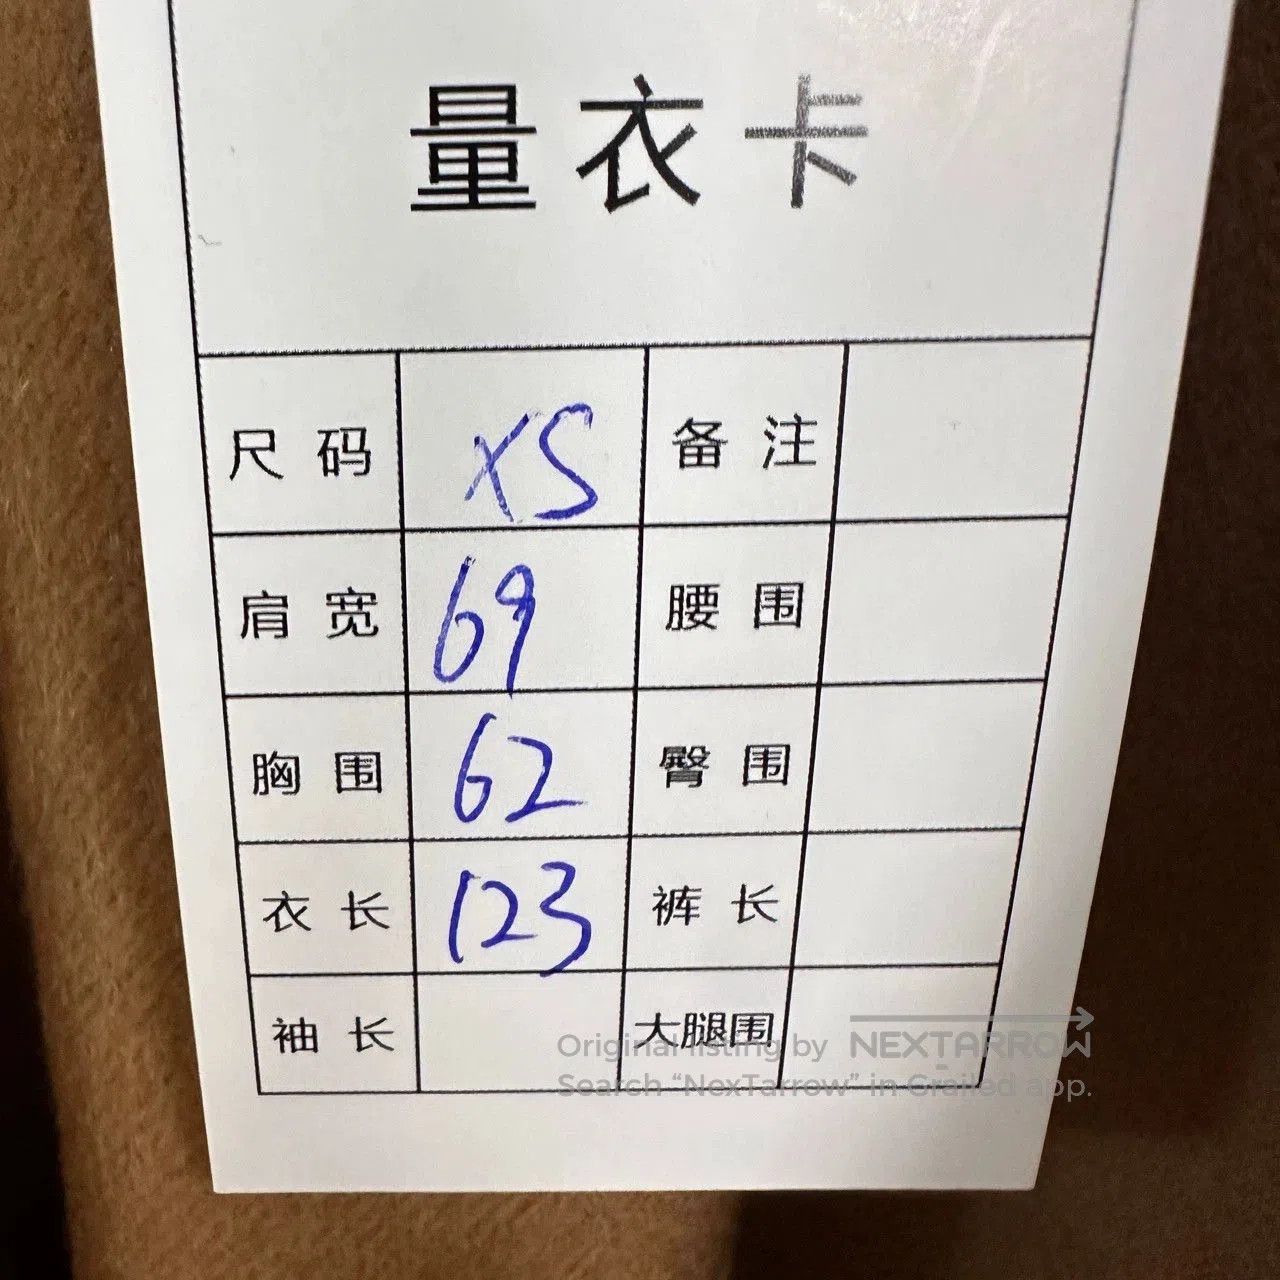 量衣卡
尺码 XS 备注
肩宽 69 腰围
胸围 62 臀围
衣长 123 裤长
袖长 大腿围
Original listing by NEXTARROW
Search “NexTarrow” in Grailed app.